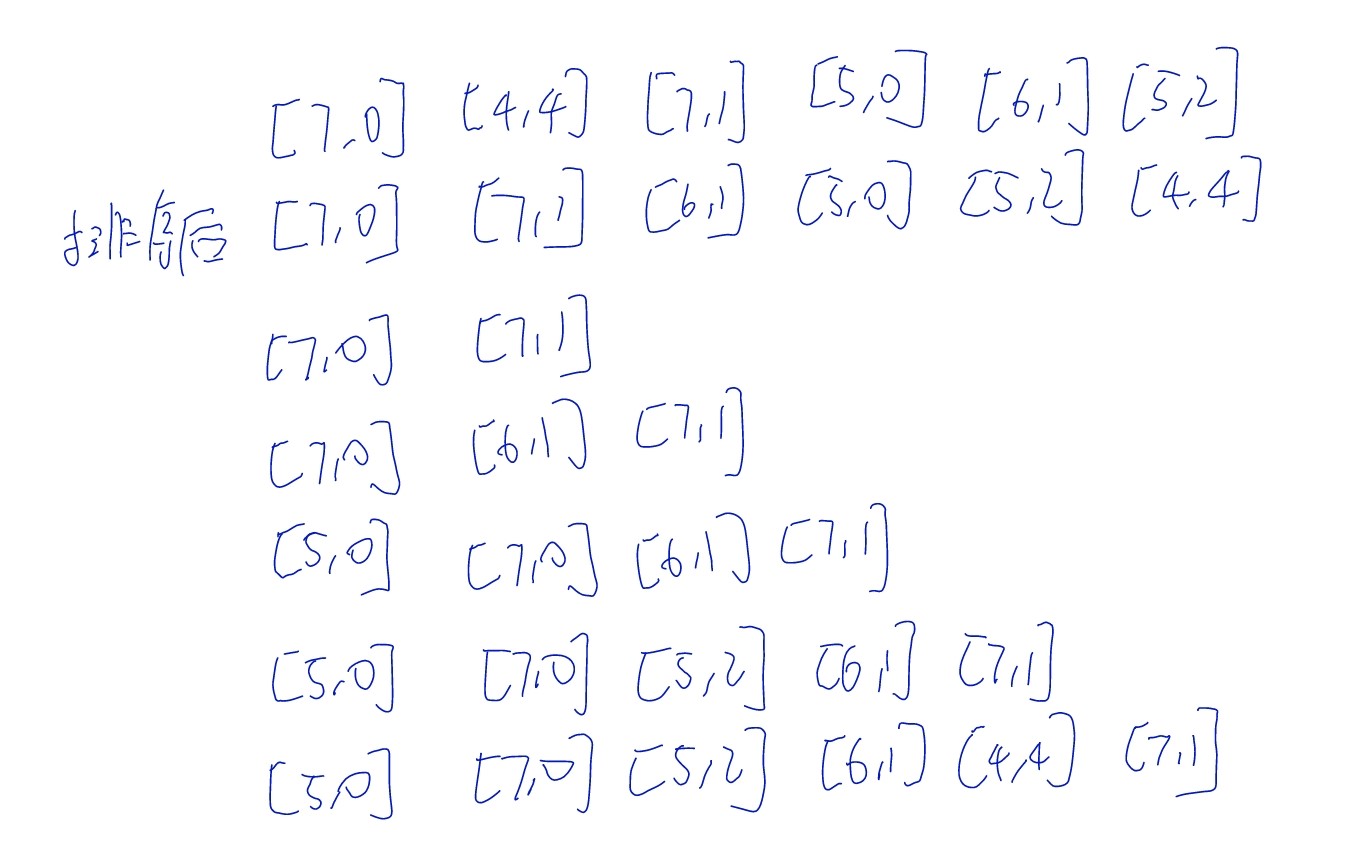 [7,0] [4,4] [7,1] [5,0] [6,1] [5,2]
排序后 [7,0] [7,1] [6,1] [5,0] [5,2] [4,4]
[7,0] [7,1]
[7,0] [6,1] [7,1]
[5,0] [7,0] [6,1] [7,1]
[5,0] [7,0] [5,2] [6,1] [7,1]
[5,0] [7,0] [5,2] [6,1] [4,4] [7,1]